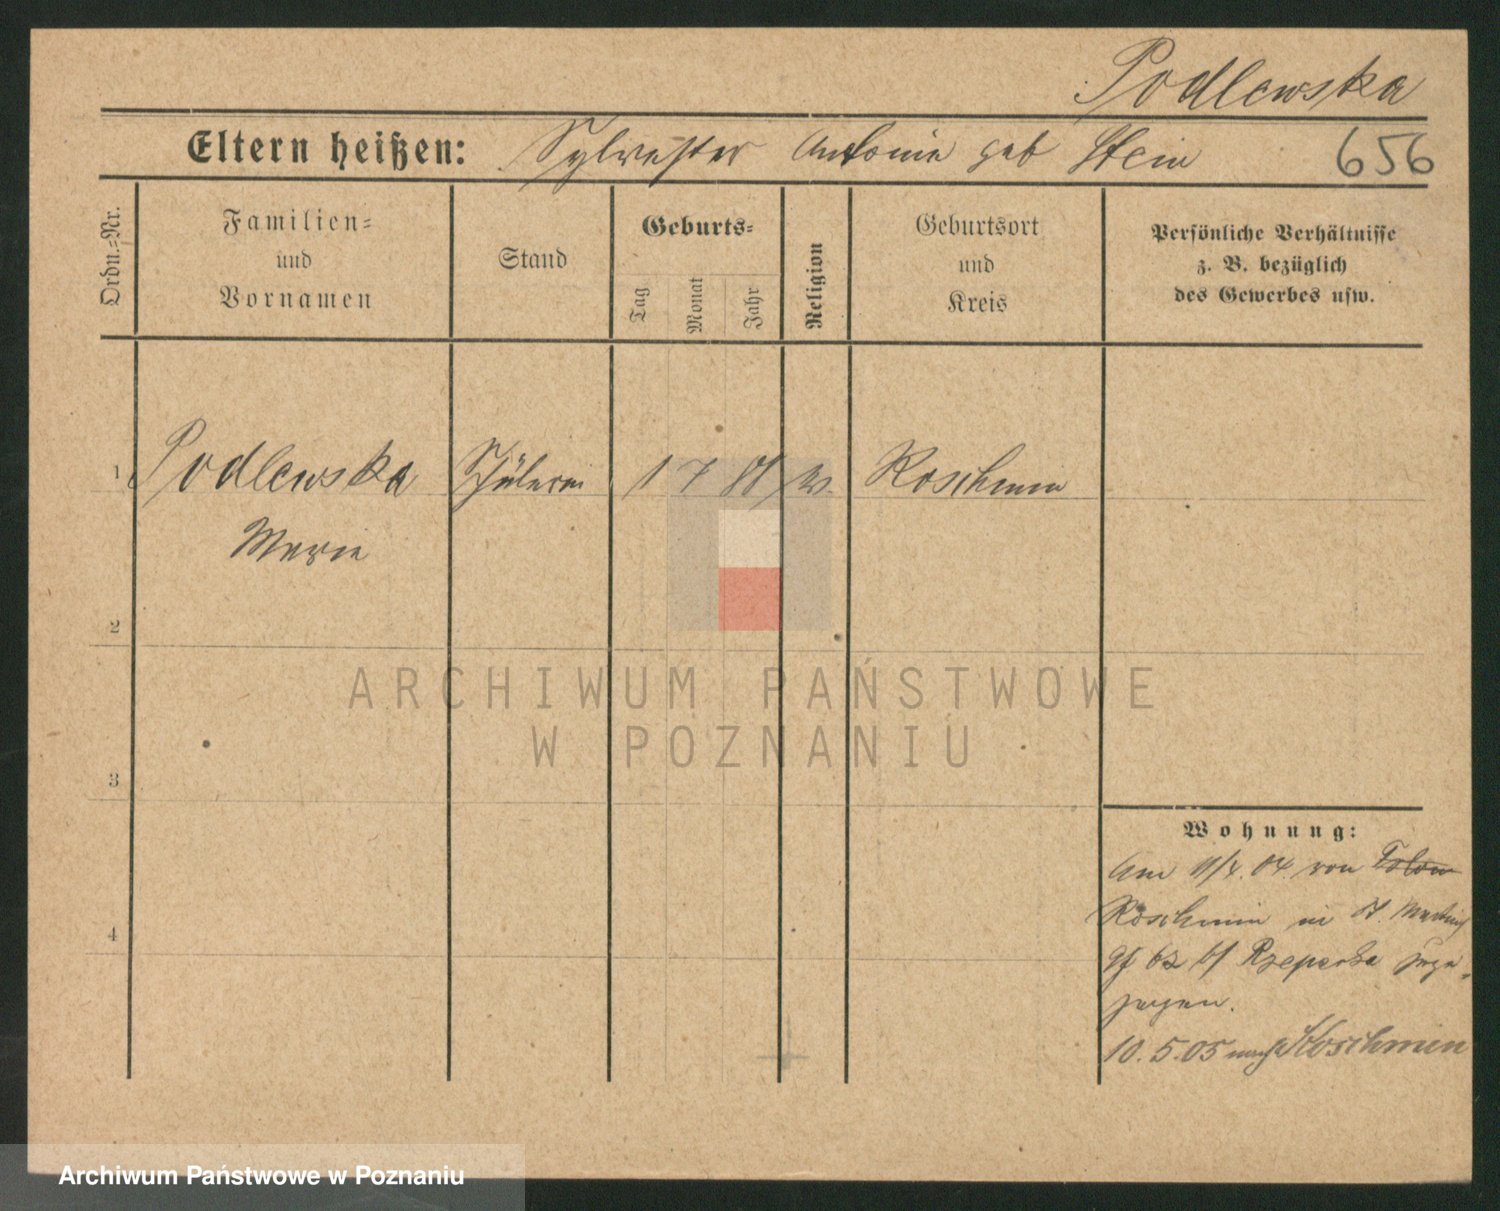 Podlewska
Eltern heißen: Sylvester Antonie geb Stein 656
Ordn.=Nr.
Familien=
und
Vornamen
Stand
Geburts=
Tag Monat Jahr
Religion
Geburtsort
und
Kreis
Persönliche Verhältnisse
z. B. bezüglich
des Gewerbes usw.
1 Podlewska Schülerin 1 7 Koschmin
Marie
2
ARCHIWUM PAŃSTWOWE
W POZNANIU
3
Wohnung:
Am 11/4. 04. von
Koschmin in St. Martin
62 b/ Rzepecka zuge-
zogen.
4
10. 5. 05 nach Koschmin
Archiwum Państwowe w Poznaniu